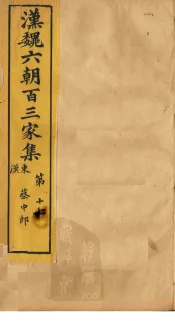 漢魏六朝百三家集
第十
東漢
蔡中郎